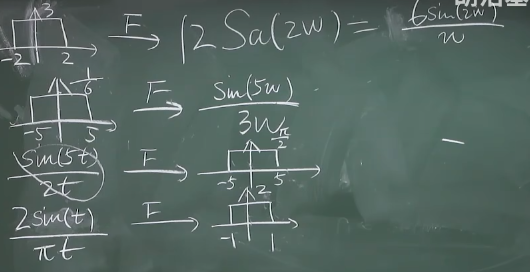 3
-2 2 F→ 12 Sa(2w) = 6sin(2w)/w
1/6
-5 5 F→ sin(5w)/3w
sin(5t)/2t F→ π/2 -5 5
2sin(t)/πt F→ 2 -1 1